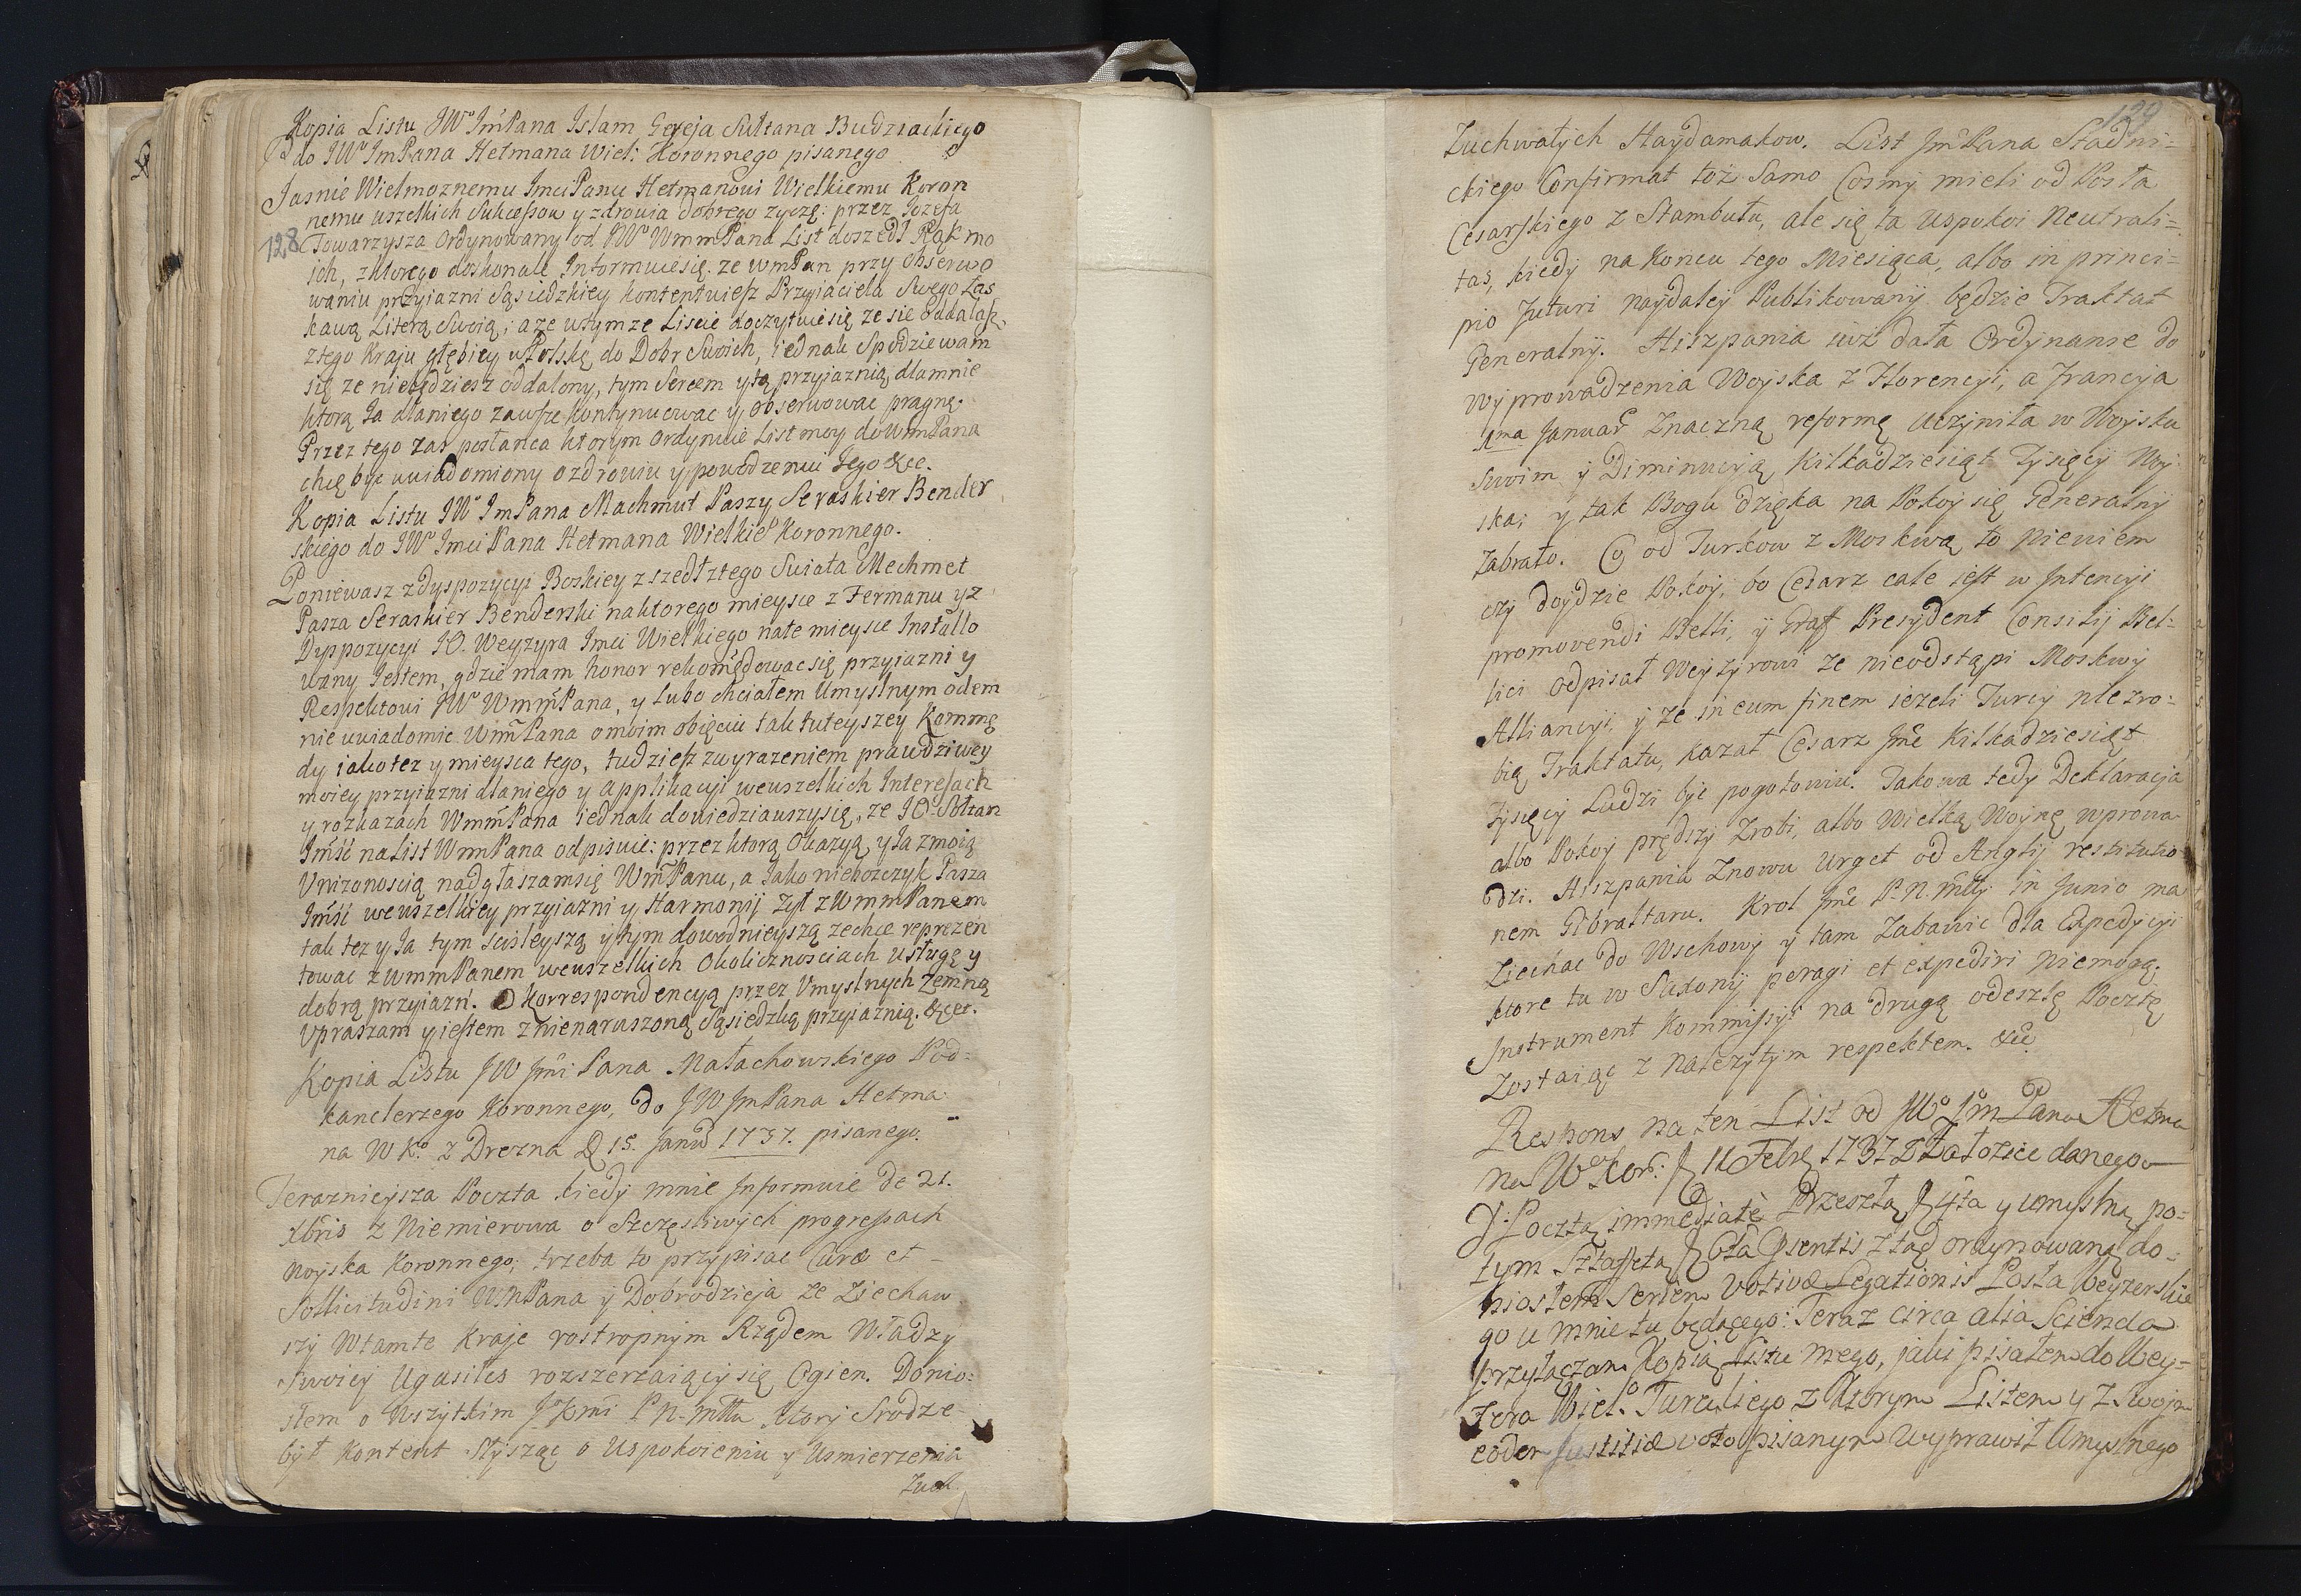 Kopia Listu JWo JmPana Islam Gereja Sultana Budziackiego
do JWo JmPana Hetmana Wiel: Koronnego pisanego
Jasnie Wielmoznemu Jmci Panu Hetmanowi Wielkiemu Koron
nemu wszelkich Sukcessow y zdrowia dobrego zyczę: przez Jozefa
128 Towarzysza Ordynowany od JWo WmmPana List doszedł Rąk mo
ich, z ktorego doskonale Informuie się, ze WmPan przy Obserwo
waniu przyiazni Sąsiedzkiey kontentuiesz Przyiaciela Swego Łas
kawą Literą Swoią; a ze w tymze Liscie doczytuie się ze sie oddalasz
z tego Kraju głębiey w Polskę do Dobr Swoich, iednak Spodziewam
się ze nie będziesz oddalony, tym Sercem y tą przyiaznią dla mnie
ktorą Ja dla niego zawsze kontynuowac y obserwowac pragnę.
Przez tego zas posłanca ktorym Ordynuie List moy do WmPana
chcę byc uwiadomiony o zdrowiu y powodzeniu Jego &ce.
Kopia Listu JWo JmPana Machmut Paszy Seraskier Bender
skiego do JWo Jmci Pana Hetmana Wielkieo Koronnego.
Poniewasz z dyspozycyi Boskiey zszedł z tego Swiata Mechmet
Pasza Seraskier Benderski na ktorego mieysce z Fermanu y z
Dyspozycyi JO. Weyzyra Jmci Wielkiego na te mieysce Installo
wany Jestem, gdzie mam honor rekomędowac się przyiazni y
Respektowi JWo WmmPana, y lubo chciałem Umyslnym odem
nie uwiadomic WmPana o moim obięciu tak tuteyszey Kommę
dy iako tez y mieysca tego, tudziesz z wyrazeniem prawdziwey
moiey przyiazni dla niego y Applikacyi we wszelkich Interesach
y rozkazach WmmPana iednak dowiedziawszy się, ze JO. Sołtan
Jmść na List WmmPana odpisuie: przez ktorą Okazyą y Ja z moią
Unizonoscią nadgłaszam się WmPanu, a Jako nieboszczyk Pasza
Jmść we wszelkiey przyiazni y Harmonij Zył z WmmPanem
tak tez y Ja tym scisleyszą y tym dowodnieyszą zechce reprezen
towac z WmmPanem we wszelkich Okolicznosciach usługę y
dobrą przyiazń. O Korrespondencyą przez Umyslnych Zemną
Upraszam y iestem z nienaruszoną Sąsiedzką przyiaznią. &cet.
Kopia Listu JW Jmci Pana Małachowskiego Pod:
kanclerzego Koronnego, do JW JmPana Hetma
na W Ko. z Drezna D 15. Janu 1737. pisanego.
Terazniejsza Poczta kiedy mnie Informuie de 21.
Xbris z Niemierowa o Szczęsliwych progressach
Woyska Koronnego, trzeba to przypisac Curæ et
Sollicitudini WMPana y Dobrodzieja ze Ziechaw
szy w tamte Kraje rostropnym Rządem Władzy
Swoiey Ugasiłes rozszerzaiący się Ogien. Donio:
słem o Wszytkim JKmci P.N. młłu ktory Srodze
był kontent Słysząc o Uspokoieniu y Usmierzenia
Zuch.
129
Zuchwałych Haydamakow. List Jm Pana Stadni=
ckiego Confirmat toż Samo Cosmy mieli od Posła
Cesarskiego z Stambułu, ale się ta uspokoi Neutrali=
tas, kiedy na Końcu tego Miesiąca, albo in princi=
pio Futuri naydaley Publikowany będzie Traktat
Generalny. Hiszpania iuż dała Ordynanse do
wyprowadzenia Woyska z Florencyi, a Francyja
1ma Januar Znaczną reformę Uczyniła w Woysku
Swoim y Diminucyją kilkadziesiąt Tysięcy Woy
ska; y tak Bogu dzięka na Pokoy się Generalny
zabrało. Co od Turkow z Moskwą to niewiem
czy doydzie Pokoy, bo Cesarz cale jest w Intencyi
promovendi Belli, y Graff Presydent Consilij Bel=
lici odpisał Weyzyrowi ze nieodstąpi Moskwy
Alliancyi, y ze in eum finem iezeli Turcy nie zro=
bią Traktatu, kazał Cesarz Jmc kilkadziesiąt
Tysięcy Ludzi byc pogotowiu. Takowa tedy Deklaracja
albo Pokoy prędszy Zrobi, albo Wielką Woynę wprowa
dzi. Hiszpania Znowu urget od Anglij restitutio
nem Gibraltaru. Krol Jmc P.N. młłty in Junio ma
Ziechac do Wschowy y tam Zabawic dla Expedycyi
ktore tu w Saxony peragi et expediri niemogą.
Instrument Kommissyi na drugą odeszlę Pocztę
Zostaiąc z należytym respektem. &c
Respons na ten List od JWo Jm Pana Hetma
na Wo Kor: D 11 Febr 1737 z Załozic danego
Pocztą immediatè Przeszłą D 4ta y umyslną po=
tym Sztaffetą D 6ta Psentis ztąd ordynowaną do=
niosłem Seriem votivæ Legationis Posła Weyzerskie
go u mnie tu będącego: Teraz circa alia Scienda
przyłączam Kopią Listu mego, jaki pisałem do Wey=
zera Wiel. Tureckiego z ktorym Listem y z Swoim
eodem justitiæ voto pisanym wyprawił Umyslnego